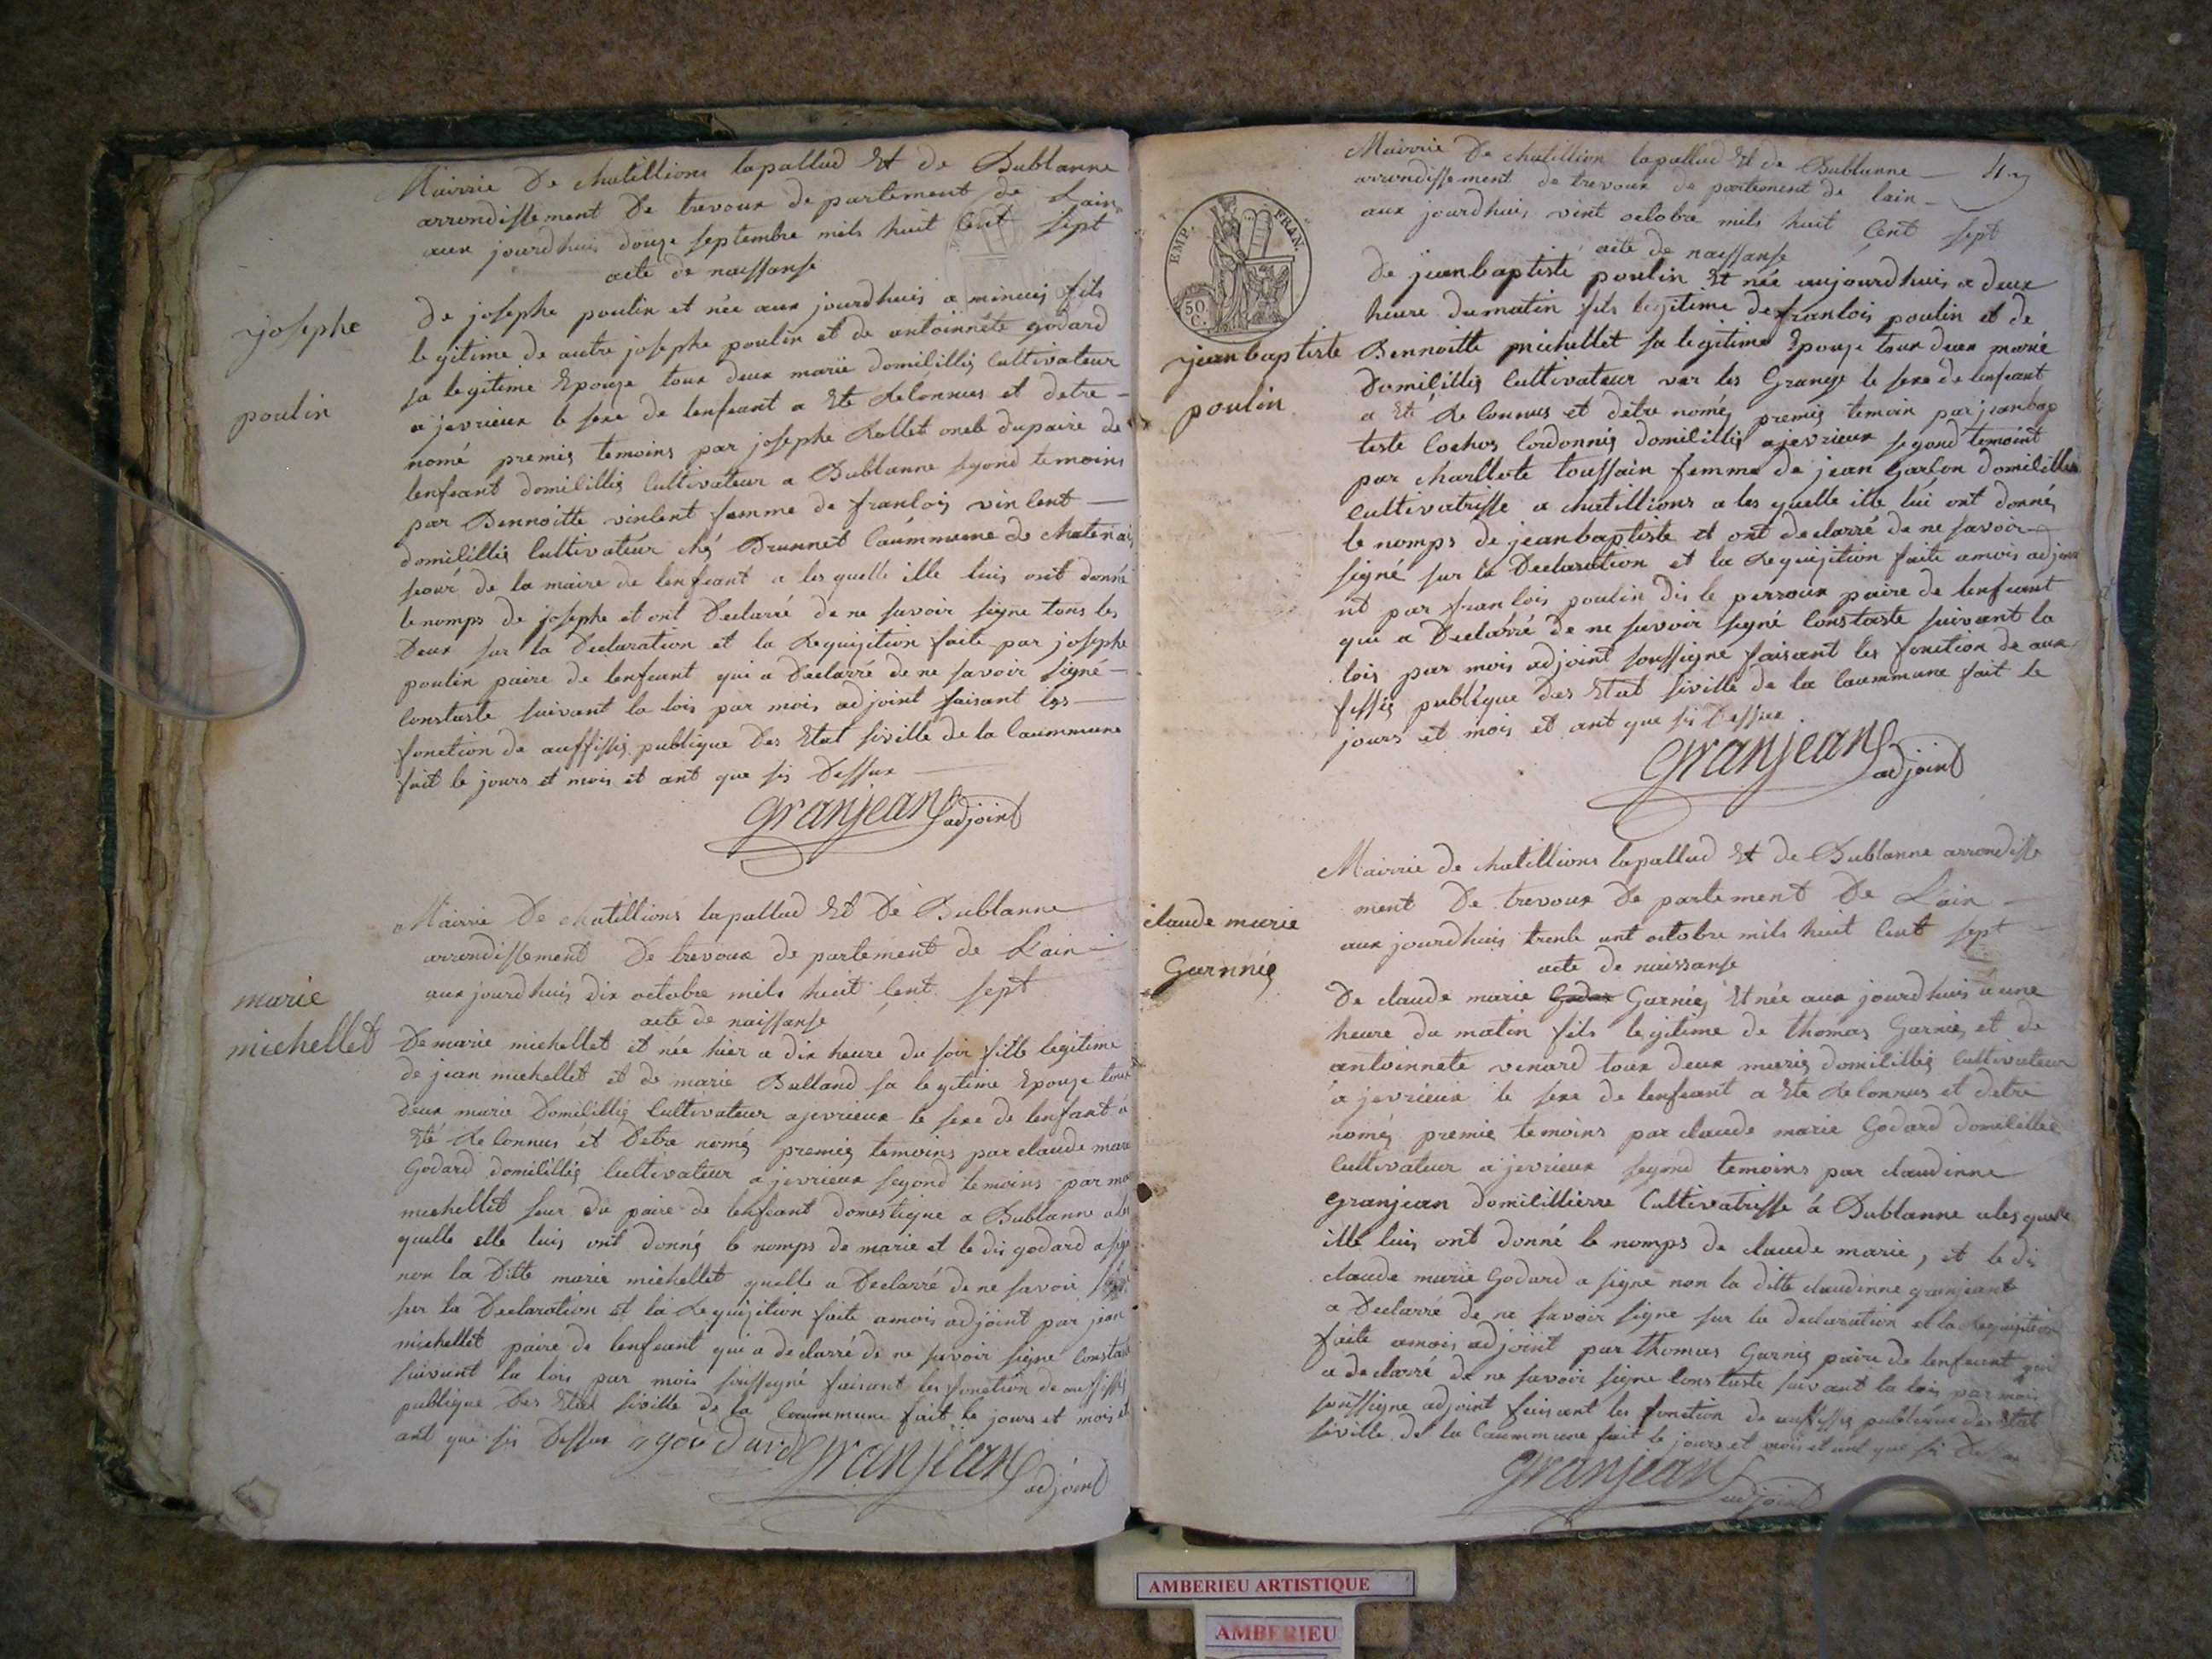 Mairrie De chatillions lapallud Et de Bublanne
arrondissement De trevoux departement de Lain
aux jourdhuis douze septembre mils huit Cent sept
acte de naissanse
josephe
poulin
De josephe poulin et née aux jourdhuis a minuis fils
legitime de autre josephe poulin et de antoinnete godard
sa legitime Epouze toux deux marié domicillig Cultivateur
a jevrieux le sexe de lenfeant a Eté Reconnus et detre
nomé premig temoins par josephe Rollet oncle dupaire de
lenfeant domicillig Cultivateur a Bublanne segond temoins
par Bennoitte vincent femme de francois vincent
domicillig Cultivateur ché Brunnet Caummune de chatenai
seour de la maire de lenfeant a les quelle ille luis ont donné
le nomps de josephe et ont Declarré de ne savoir signe tous les
Deux sur la Declaration et la Requijition faite par josephe
poulin paire de lenfeant qui a Declarré de ne savoir signé
Constaste suivant la lois par mois adjoint faisant les
fonction de auffissig publique Des Etat siville de la Caummune
fait le jours et mois et ant que sis Dessux
granjean adjoint
Mairrie De chatillions lapallud Et De Bublanne
arrondissement De trevoux departement de Lain
aux jourdhuis dix octobre mils huit Cent sept
acte de naissanse
marie
michellet
De marie michellet et née hier a dix heure du soir fille legitime
de jean michellet et de marie Balland sa legitime Epouze toux
deux marie Domicillig Cultivateur a jevrieux le sexe de lenfant a
Eté Reconnus et Detre nomég premig temoins par claude marie
Godard domicillig Cultivateur a jevrieux segond temoins par
michellet seur du paire de lenfeant domestique a Bublanne a les
quelle elle luis ont donnég le nomps de marie et le dis godard a
non la Ditte marie michellet quelle a Declarré de ne savoir
sur la Declaration et la Requijition faite amois adjoint par jean
michellet paire de lenfeant qui a declarré de ne savoir signe
suivant la lois par mois soussigné faisant les fonction de auffissig
publique Des Etat siville de la Caummune fait le jours et mois et
ant que sis Dessux godard granjean
adjoint
Mairrie De chatillion lapallud Et de Bublanne
arrondissement de trevoux departement de lain
aux jourdhuis vint octobre mils huit Cent sept
acte de naissanse
EMP. FRAN.
50 C.
jeanbaptiste
poulin
De jeanbaptiste poulin Et née aujourdhuis a deux
heure dumatin fils legitime de francois poulin et de
Bennoitte michellet sa legitime Epouze toux deux marié
Domicillig Cultivateur var les Grange le sexe de lenfeant
a Eté Reconnus et detre nomég premig temoin par jeanbap
tiste Cochos Cordonnig domicillig a jevrieux segond temoint
par charllote toussain femme de jean Garcon domicillie
Cultivatrisse a chatillions a les quelle ille lui ont donnég
le nomps de jeanbaptiste et ont declarré de ne savoir
signé sur la Declaration et la Requijition faite amois adjoi
nt par francois poulin dis le perroux paire de lenfeant
qui a Declarré de ne savoir signé Constaste suivant la
lois par mois adjoint soussigne faisant les fonction de aux
fissig publique des Etat siville de la Caummune fait le
jours et mois et ant que sis Dessux
granjean
adjoint
Mairrie de chatillions lapallud Et de Bublanne arrondisse
ment De trevoux De partement De Lain
aux jourdhuis trente unt octobre mils huit Cent sept
acte de naissanse
claude marie
Garnnig
De claude marie Garnieg Et née aux jourdhuis a une
heure du matin fils legitime de thomas Garnieg et de
antoinnete venard toux deux marig domicillig Cultivateur
a jevrieux le sexe de lenfeant a Eté Reconnus et detre
nomég premie temoins par claude marie Godard domicillie
Cultivateur a jevrieux segond temoins par claudinne
granjean domicillierre Cultivatrisse à Bublanne a les quelle
ille luis ont donné le nomps de claude marie, et le dis
claude marie Godard a signe non la ditte claudinne granjeant
a Declarré de ne savoir signe sur la declaration et la Requijition
faite amois adjoint par thomas Garnig paire de lenfeant qui
a declarré de ne savoir signe Constaste suivant la lois par mois
soussigne adjoint faisant les fonction de auffissig publique des Etat
siville de la Caummune fait le jours et mois et ant que sis Dessux
granjean
adjoint
AMBERIEU ARTISTIQUE
AMBERIEU